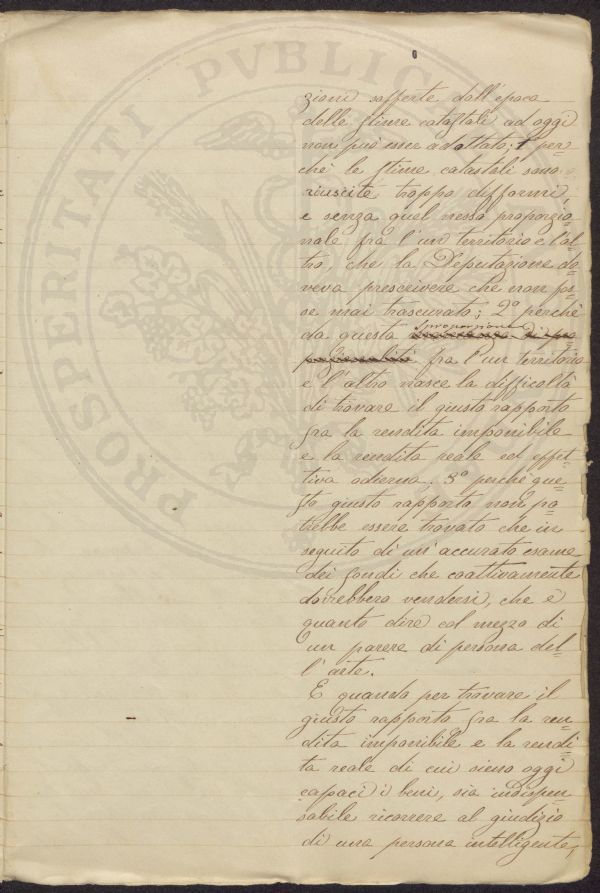 PROSPERITATI PVBLIC
zioni sofferte dall'epoca
delle stime catastali ad oggi
non può esser adottato; 1° per=
chè le stime catastali sono
riuscite troppo difformi,
e senza quel nesso proporzio=
nale fra l'un territorio e l'al=
tro, che la Deputazione do=
veva prescrivere che non fos=
se mai trascurato; 2° perchè
da questa sproporzione
fra l'un territorio
e l'altro nasce la difficoltà
di trovare il giusto rapporto
fra la rendita imponibile
e la rendita reale ed effet=
tiva odierna. 3° perchè que=
sto giusto rapporto non po=
trebbe essere trovato che in
seguito di un'accurato esame
dei fondi che coattivamente
dovrebbero vendersi, che è
quanto dire col mezzo di
un parere di persona del=
l'arte.
E quando per trovare il
giusto rapporto fra la ren=
dita imponibile e la rendi=
ta reale di cui sieno oggi
capaci i beni, sia indispen=
sabile ricorrere al giudizio
di una persona intelligente,